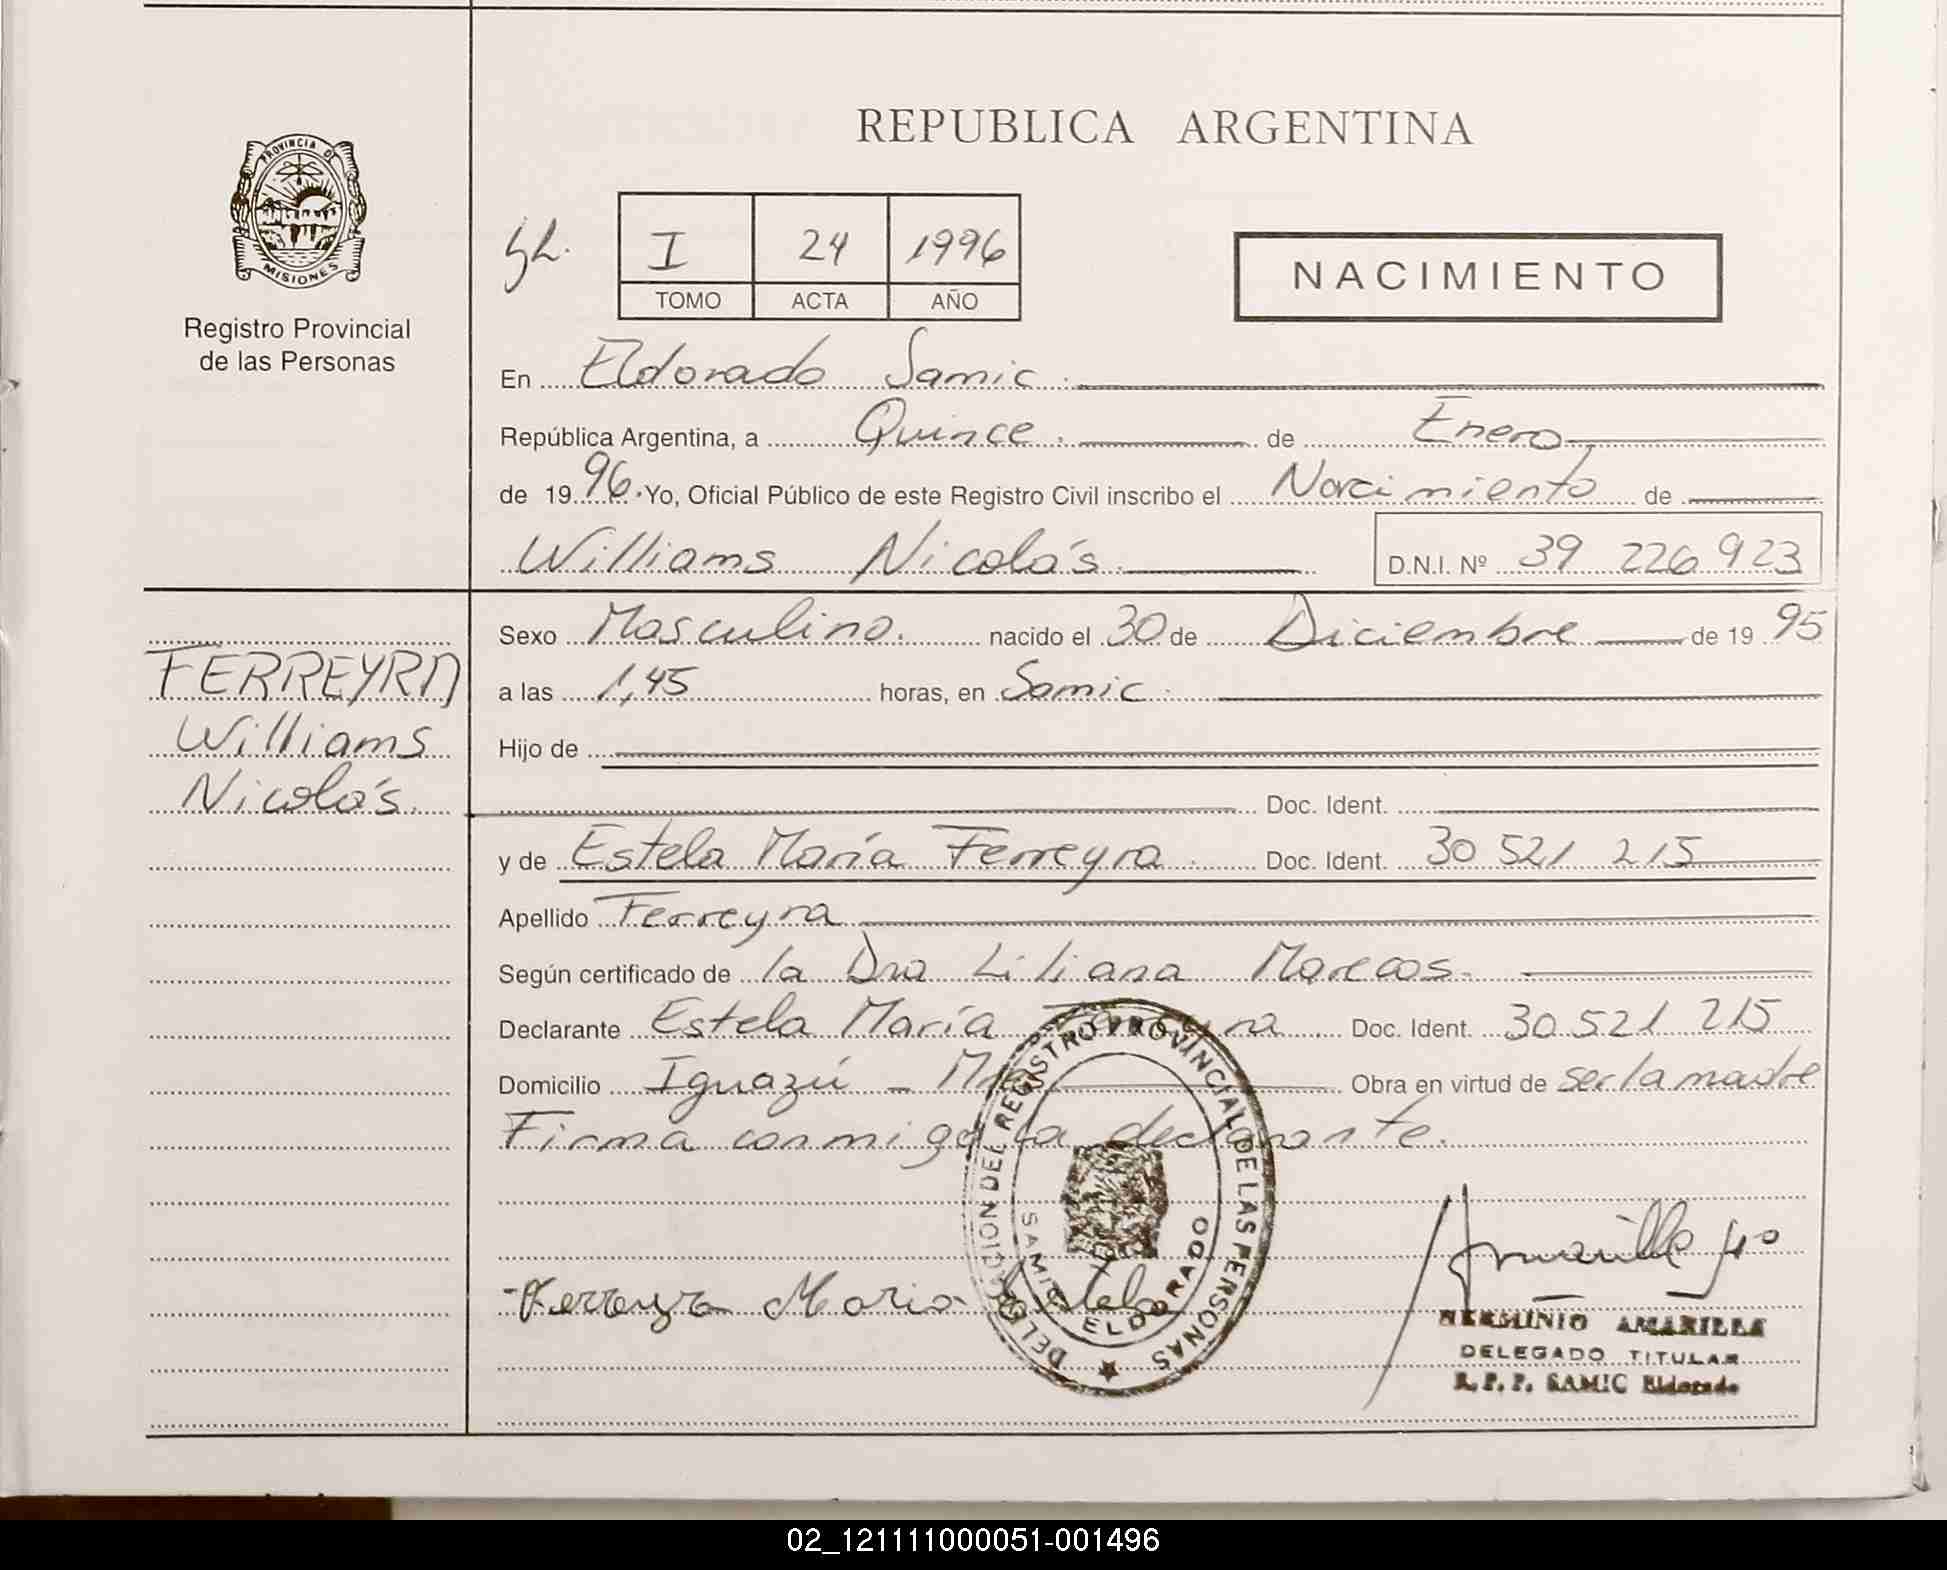 REPUBLICA ARGENTINA
PROVINCIA DE
MISIONES
Registro Provincial
de las Personas
I 24 1996
TOMO ACTA AÑO
NACIMIENTO
En Eldorado Samic.
República Argentina, a Quince. de Enero
de 1996. Yo, Oficial Público de este Registro Civil inscribo el Nacimiento de
Williams Nicolás. D.N.I. Nº 39 226 923
FERREYRA
Williams
Nicolás.
Sexo Masculino. nacido el 30 de Diciembre de 19 95
a las 1,45 horas, en Samic.
Hijo de
Doc. Ident.
y de Estela María Ferreyra. Doc. Ident. 30 521 215
Apellido Ferreyra
Según certificado de la Dra Liliana Marcos.
Declarante Estela María Ferreyra. Doc. Ident. 30 521 215
Domicilio Iguazú - Mnes Obra en virtud de ser la madre
Firma conmigo la declarante.
DELEGACION DEL REGISTRO PROVINCIAL DE LAS PERSONAS
SAMIC ELDORADO
Ferreyra Maria Estela
HERMINIO AMARILLA
DELEGADO TITULAR
R.P.P. SAMIC Eldorado
02_121111000051-001496